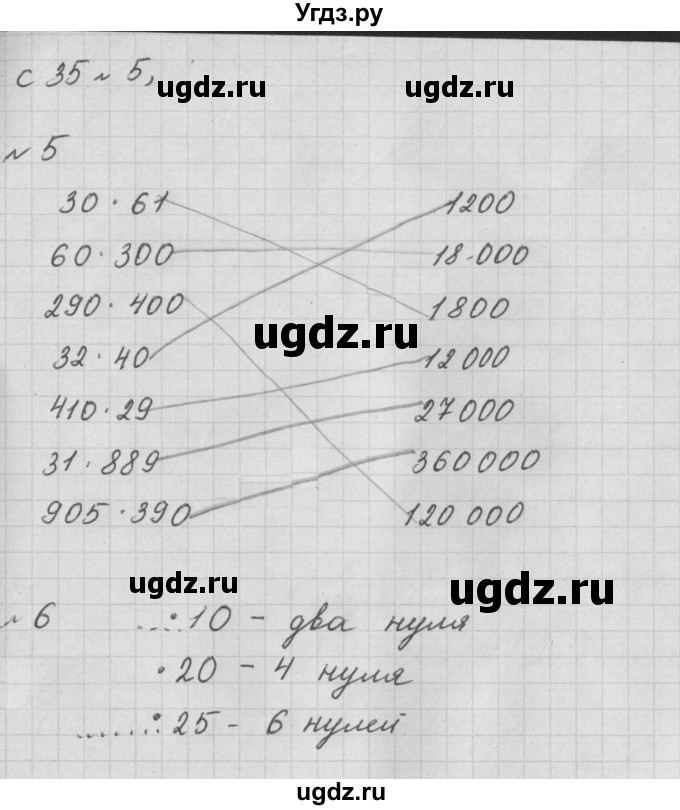 Угдз.ру
с 35 № 5,
ugdz.ru ugdz.ru
№ 5
30 · 61 1200
60 · 300 18 000
290 · 400 1800
ugdz.ru
32 · 40 12 000
410 · 29 27 000
31 · 889 360 000
905 · 390 120 000
ugdz.ru ugdz.ru
№ 6 ....:10 - два нуля
·20 - 4 нуля
......: 25 - 6 нулей
ugdz.ru